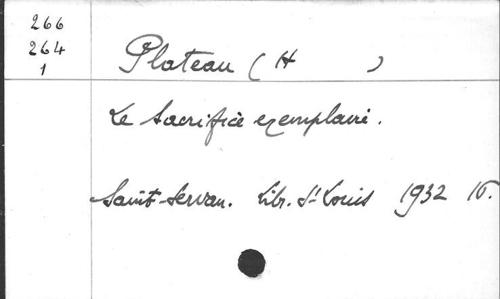 266
264
1
Plateau (H )
Le Sacrifice exemplaire.
Saint-Servan. Libr. St Louis 1932 16.